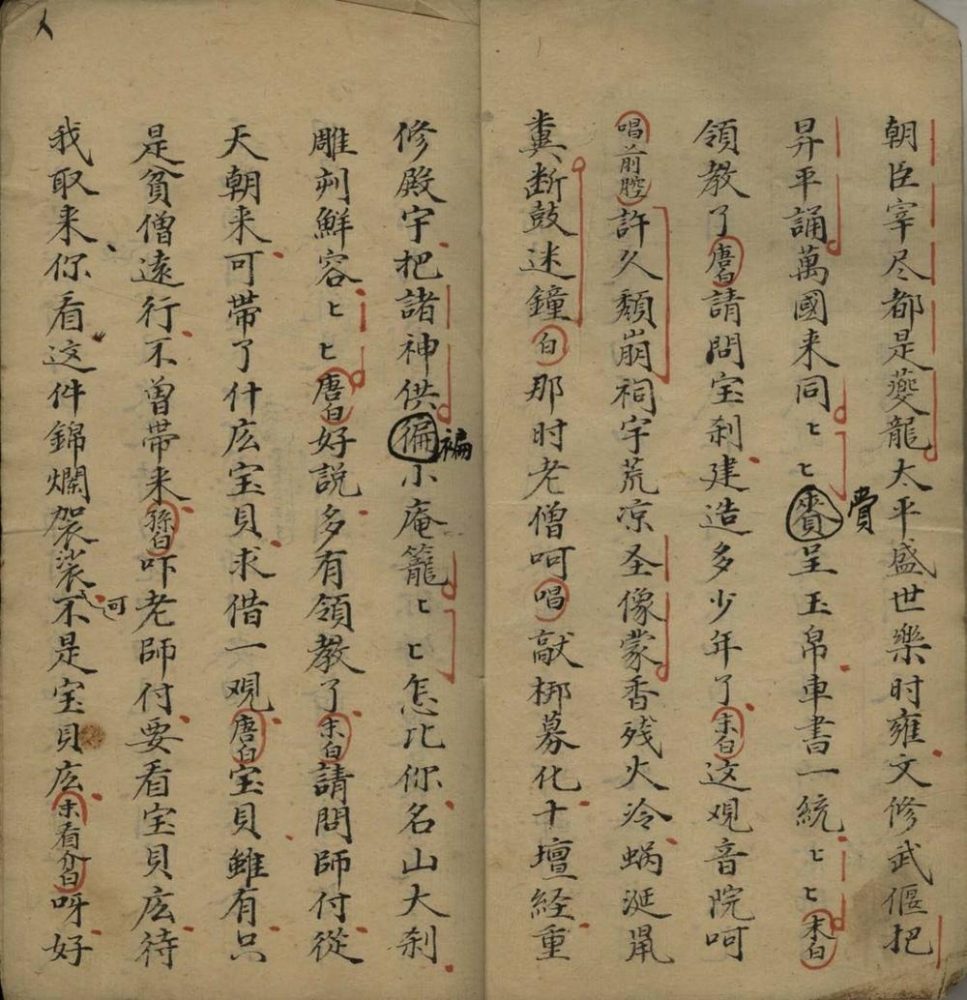 朝臣宰尽都是夔龍太平盛世樂时雍文修武偃把
昇平誦萬國来同ヒヒ賚賫呈玉帛車書一統ヒヒ末白
領教了唐白請問宝刹建造多少年了末白这观音院呵
唱前腔許久頽崩祠宇荒凉圣像蒙香残火冷蜗涎鼠
糞断鼓迷鐘白那时老僧呵唱敲梆募化十壇経重
修殿宇把諸神供褊小庵籠ヒヒ怎比你名山大刹
雕刻鮮容ヒヒ唐白好説多有領教了末白請問師付從
天朝来可帶了什庅宝貝求借一观唐白宝貝雖有只
是貧僧遠行不曽帶来孫白吓老師付要看宝貝庅待
我取来你看这件錦爛袈裟可不是宝貝庅末看介白呀好